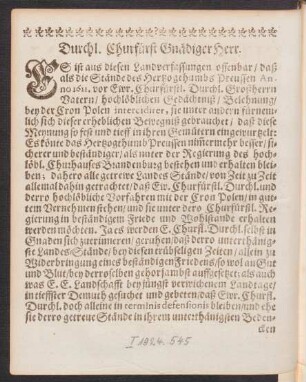 Durchl. Churfürst Gnädiger Herr.
ES ist aus diesen Landverfassungen offenbar/ daß
als die Stände des Hertzogthumbs Preussen An-
no 1611. vor Ewr. Churfürstl. Durchl. Großherrn
Vatern/ hochlöblichen Gedächtniß/ Belehnung/
bey der Cron Polen intercedirer, sie unter andern fürnem-
lich sich dieser erheblichen Bewegniß gebrauchet/ daß diese
Meynung so fest und tieff in ihren Gemütern eingewurtzelt:
Es könte das Hertzogthumb Preussen nimmermehr besser/ si-
cherer und beständiger/ als unter der Regierung des hoch-
löbl. Churhauses Brandenburg bestehen und erhalten blei-
ben: dahero alle getrewe Landes Stände/ von Zeit zu Zeit
allemal dahin getrachtet/ daß Ew. Churfürstl. Durchl. und
dero hochlöbliche Vorfahren mit der Cron Polen/ in gut-
tem Vernehmen stehen/ und sie unter dero Churfürstl. Re-
gierung in beständigem Friede und Wohlstande erhalten
werden möchten. Ja es werden E. Churfl. Durchl. selbst in
Gnaden sich zuerinnern/ geruhen/ daß dero unterthänig-
ste Landes-Stände/ bey diesen trübseligen Zeiten/ allein zu
Wiederbringung eines beständigen Friedens/ so wol an Gut
und Blut/ bey derroselben gehorsambst auffgesetzet: als auch
was E. E. Landschafft bey jüngst verwichenem Landtage/
in tieffster Demuth gesuchet und gebeten/ daß Ewr. Churfl.
Durchl. doch alleine in terminis defensionis bleiben/ und ehe
sie derro getreue Stände in ihrem unterthänigsten Beden-
cken
I 1824. 545